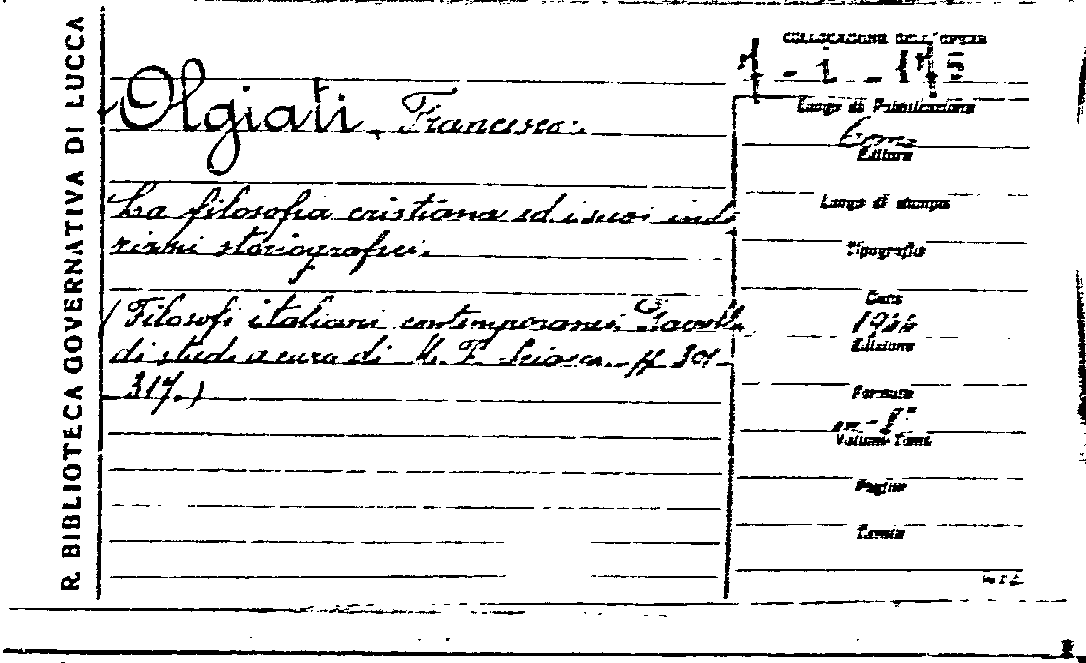 R. BIBLIOTECA GOVERNATIVA DI LUCCA
COLLOCAZIONE DELL'OPERA
Olgiati, Francesco.
La filosofia cristiana ed i suoi indi
rizzi storiografici.
(Filosofi italiani contemporanei
di studi a cura di M. F. Sciacca. pp 301-
317.)
Luogo di Pubblicazione
Como
Editore
Luogo di stampa
Tipografia
Data
1944
Edizione
Formato
in-8°
Volumi Tomi
Pagine
Tavole